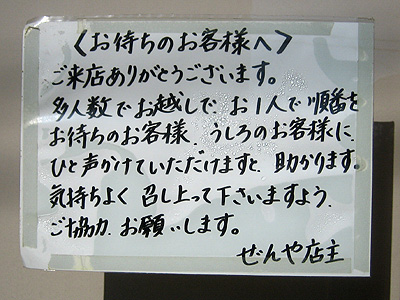 〈お待ちのお客様へ〉
ご来店ありがとうございます。
多人数でお越しで、お1人で順番を
お待ちのお客様、うしろのお客様に
ひと声かけていただけますと、助かります。
気持ちよく召し上って下さいますよう、
ご協力、お願いします。
ぜんや店主